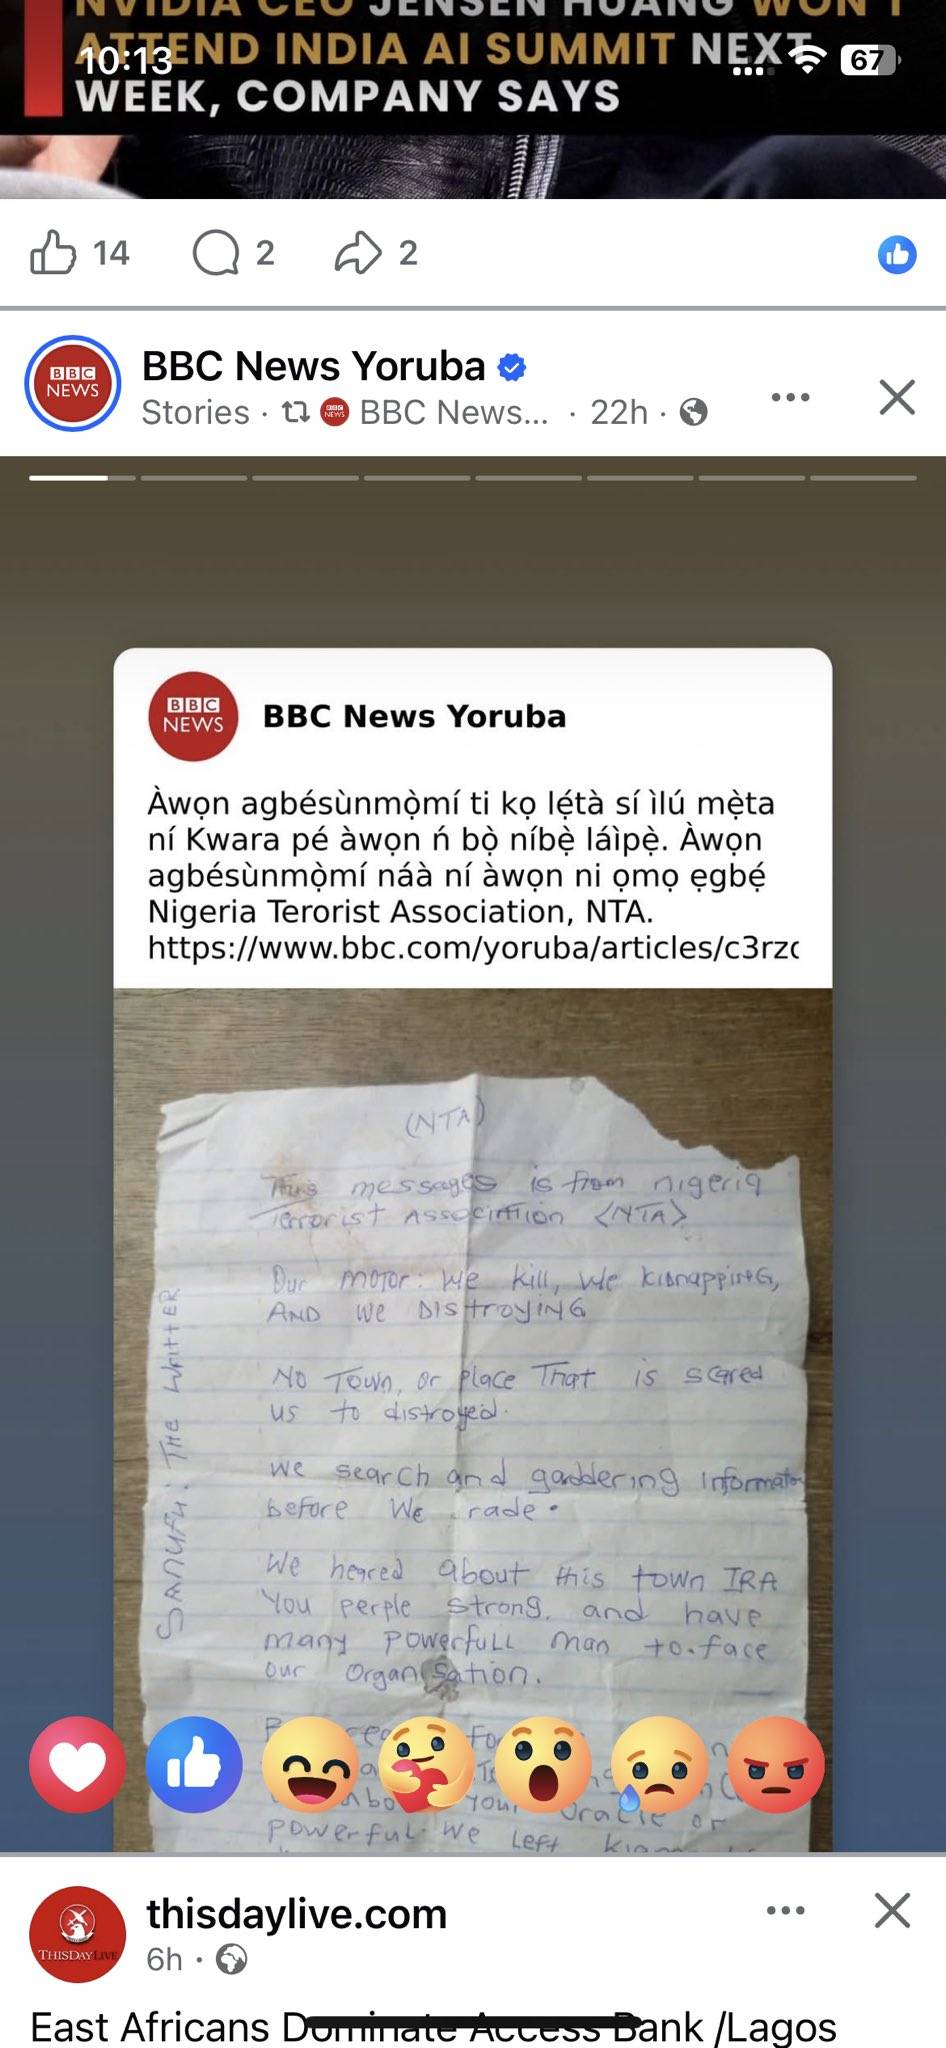 NVIDIA CEO JENSEN HUANG WON'T
ATTEND INDIA AI SUMMIT NEXT
WEEK, COMPANY SAYS
10:13
67
14
2
2
BBC NEWS
BBC News Yoruba
Stories · BBC News... · 22h ·
BBC NEWS
BBC News Yoruba
Àwọn agbésùnmọ̀mí ti kọ lẹ́tà sí ìlú mẹ̀ta
ní Kwara pé àwọn ń bọ̀ níbẹ̀ láìpẹ̀. Àwọn
agbésùnmọ̀mí náà ní àwọn ni ọmọ ẹgbẹ́
Nigeria Terorist Association, NTA.
https://www.bbc.com/yoruba/articles/c3rzc
(NTA)
This messages is from nigeria
Terrorist Association <NTA>
Our motor: We kill, We kidnapping,
AND We DIStroyING
No Town, or place That is scared
us to distroyed.
We search and gaddering Informatio
before We rade.
We heared about this town IRA
You perple strong, and have
many powerfull man to-face
our Organisation.
your Oracle or
powerful We Left
SANUFU: THE WRITTER
thisdaylive.com
THISDAYLIVE
6h ·
East Africans Dominate Access Bank /Lagos